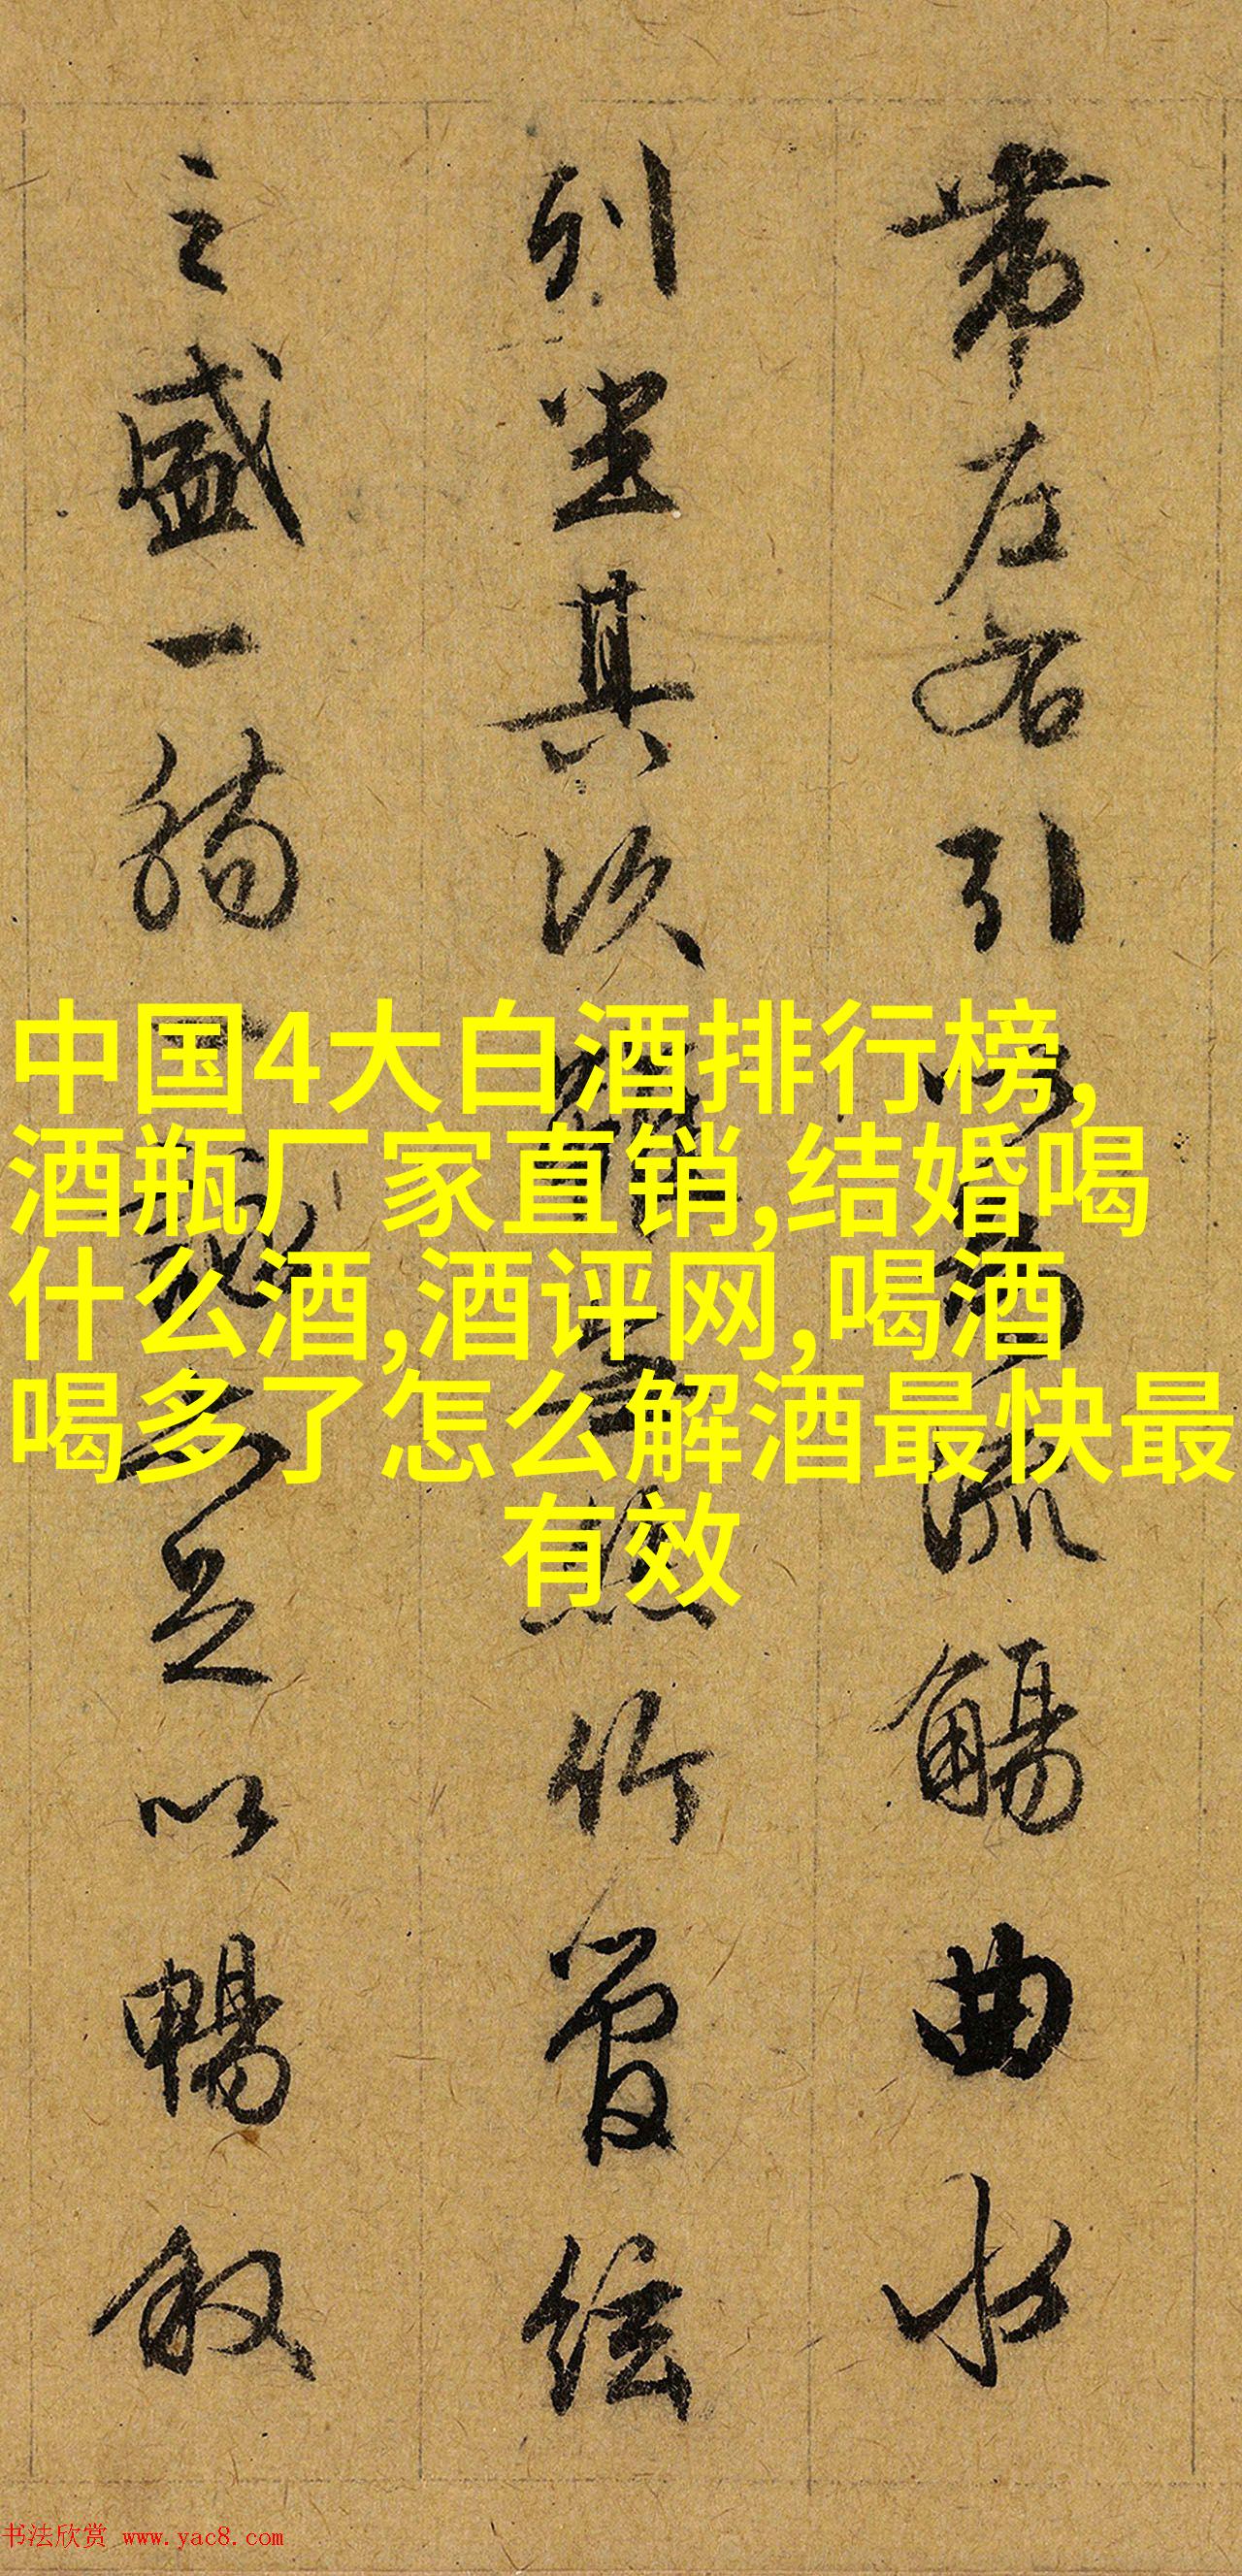 帶左右引以為流觴曲水
列坐其次雖無絲竹管絃
之盛一觴一詠亦足以暢敘
中国4大白酒排行榜,
酒瓶厂家直销,结婚喝
什么酒,酒评网,喝酒
喝多了怎么解酒最快最
有效
书法欣赏 www.yac8.com